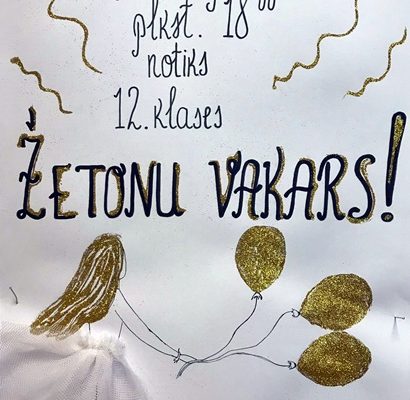 plkst. 18
notiks
12. klases
ŽETONU VAKARS!